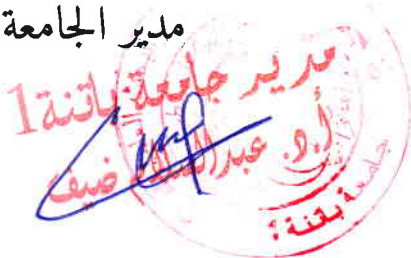 مدير الجامعة
مدير جامعة باتنة 1
أ.د. عبد السلام ضيف
جامعة باتنة 1